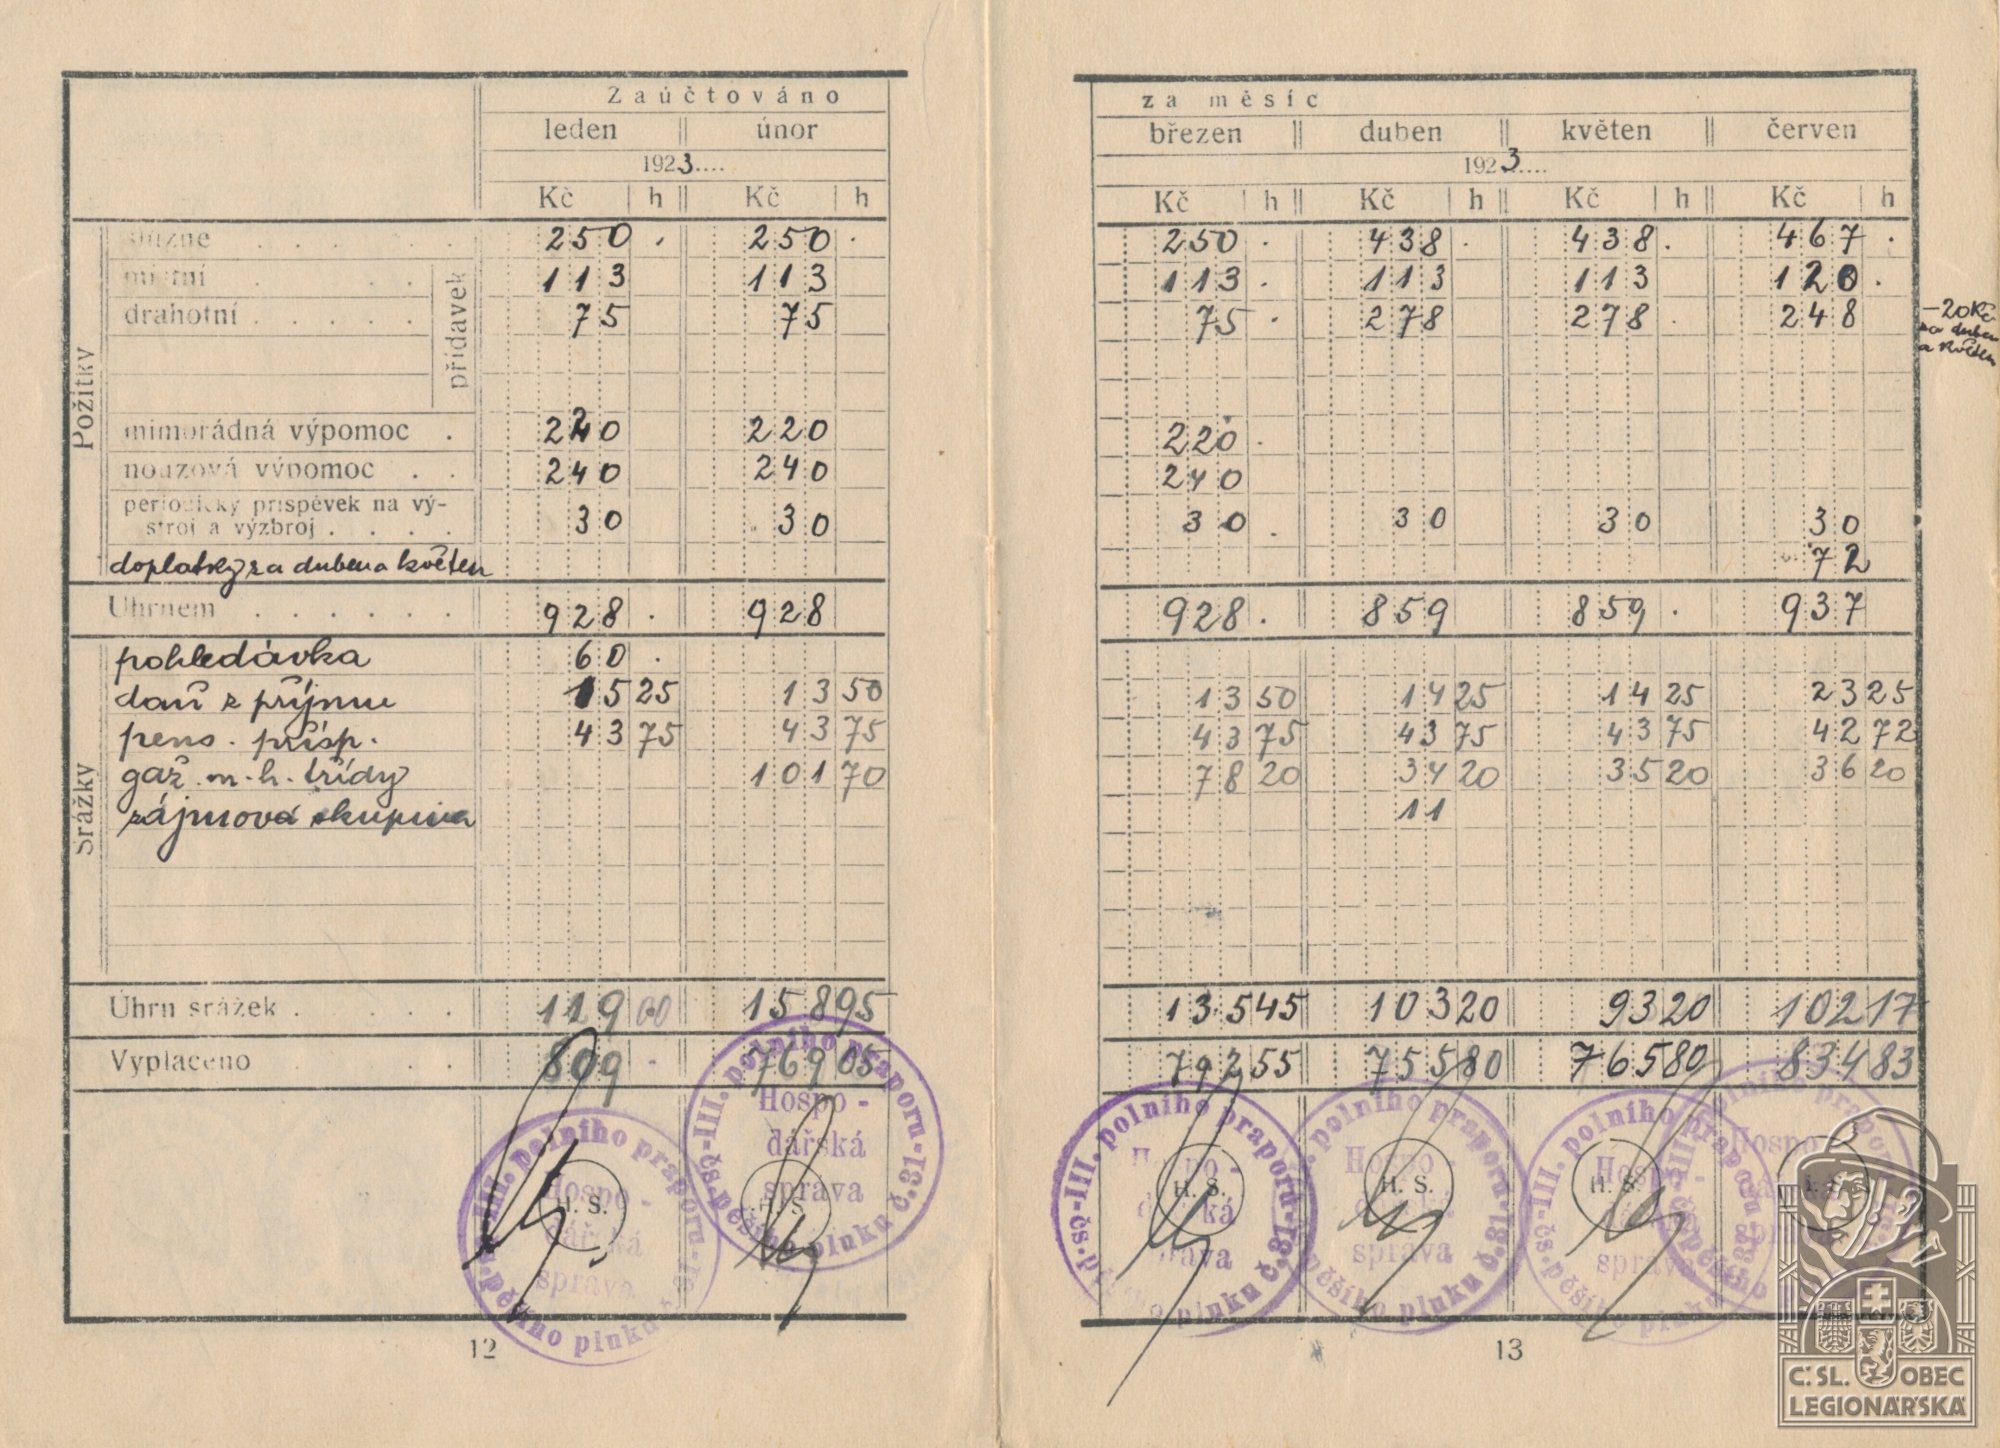 Zaúčtováno
leden únor
1923....
Kč h Kč h
Požitky
služné . . . . . . 250 . 250 .
místní . . . 113 113
drahotní . . . . . 75 75
přídavek
mimořádná výpomoc . 220 220
nouzová výpomoc . . 240 240
periodický příspěvek na vý-
stroj a výzbroj . . . . 30 30
doplatky za duben a květen
Úhrnem . . . . . . 928 . 928
Srážky
pohledávka 60 .
daň z příjmu 15 25 13 50
pens. přísp. 43 75 43 75
gaž. m. h. třídy 101 70
zájmová skupina
Úhrn srážek . . . . . 119 00 158 95
Vyplaceno . . . . 809 . 769 05
H. S. H. S.
čs. III. polního praporu
Hospo-
dářská
správa
pěšího pluku č. 31
12
za měsíc
březen duben květen červen
1923....
Kč h Kč h Kč h Kč h
250 . 438 . 438 . 467 .
113 . 113 113 120 .
75 . 278 278 . 248
-20 Kč
za duben
a květen
220 .
240
30 . 30 30 30
72
928 . 859 859 . 937
13 50 14 25 14 25 23 25
43 75 43 75 43 75 42 72
78 20 34 20 35 20 36 20
11
135 45 103 20 93 20 102 17
792 55 755 80 765 80 834 83
H. S. H. S. H. S.
čs. III. polního praporu
Hospo-
správa
pěšího pluku č. 31
13
Č. SL. OBEC
LEGIONÁŘSKÁ